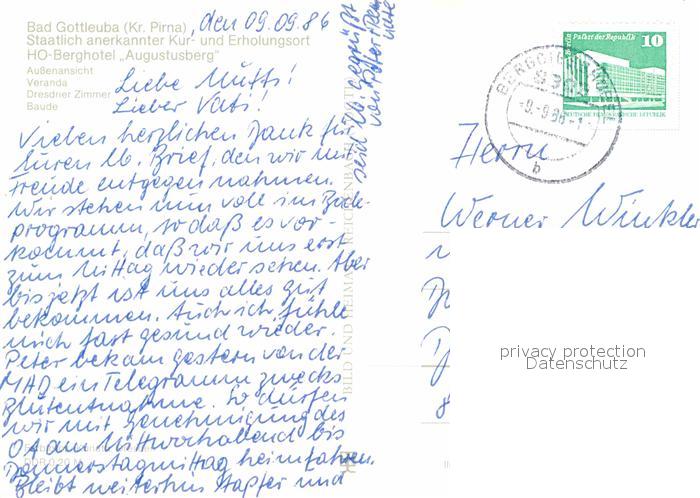 Bad Gottleuba (Kr. Pirna), den 09.09.86
Staatlich anerkannter Kur- und Erholungsort
HO-Berghotel „Augustusberg"
Außenansicht
Veranda
Dresdner Zimmer
Baude
Liebe Mutti!
Lieber Vati!
Vielen herzlichen Dank für
Euren lb. Brief, den wir mit
Freude entgegen nahmen.
Wir stehen nun voll im Bade-
programm, so daß es vor-
kommt, daß wir uns erst
zum Mittag wieder sehen. Aber
bis jetzt ist uns alles gut
bekommen. Auch ich fühle
mich fast gesund wieder.
Peter bekam gestern von der
MAD ein Telegramm zwecks
Blutentnahme. So dürfen
wir mit Genehmigung des
OA am Mittwochabend bis
Donnerstagmittag heimfahren.
Bleibt weiterhin tapfer und
seid lb. gegrüßt
von Peter
BILD UND HEIMAT REICHENBACH
Palast der Republik
10
DEUTSCHE DEMOKRATISCHE REPUBLIK
-9.-9.86-1
b
Herrn
Werner Winkler
privacy protection
Datenschutz